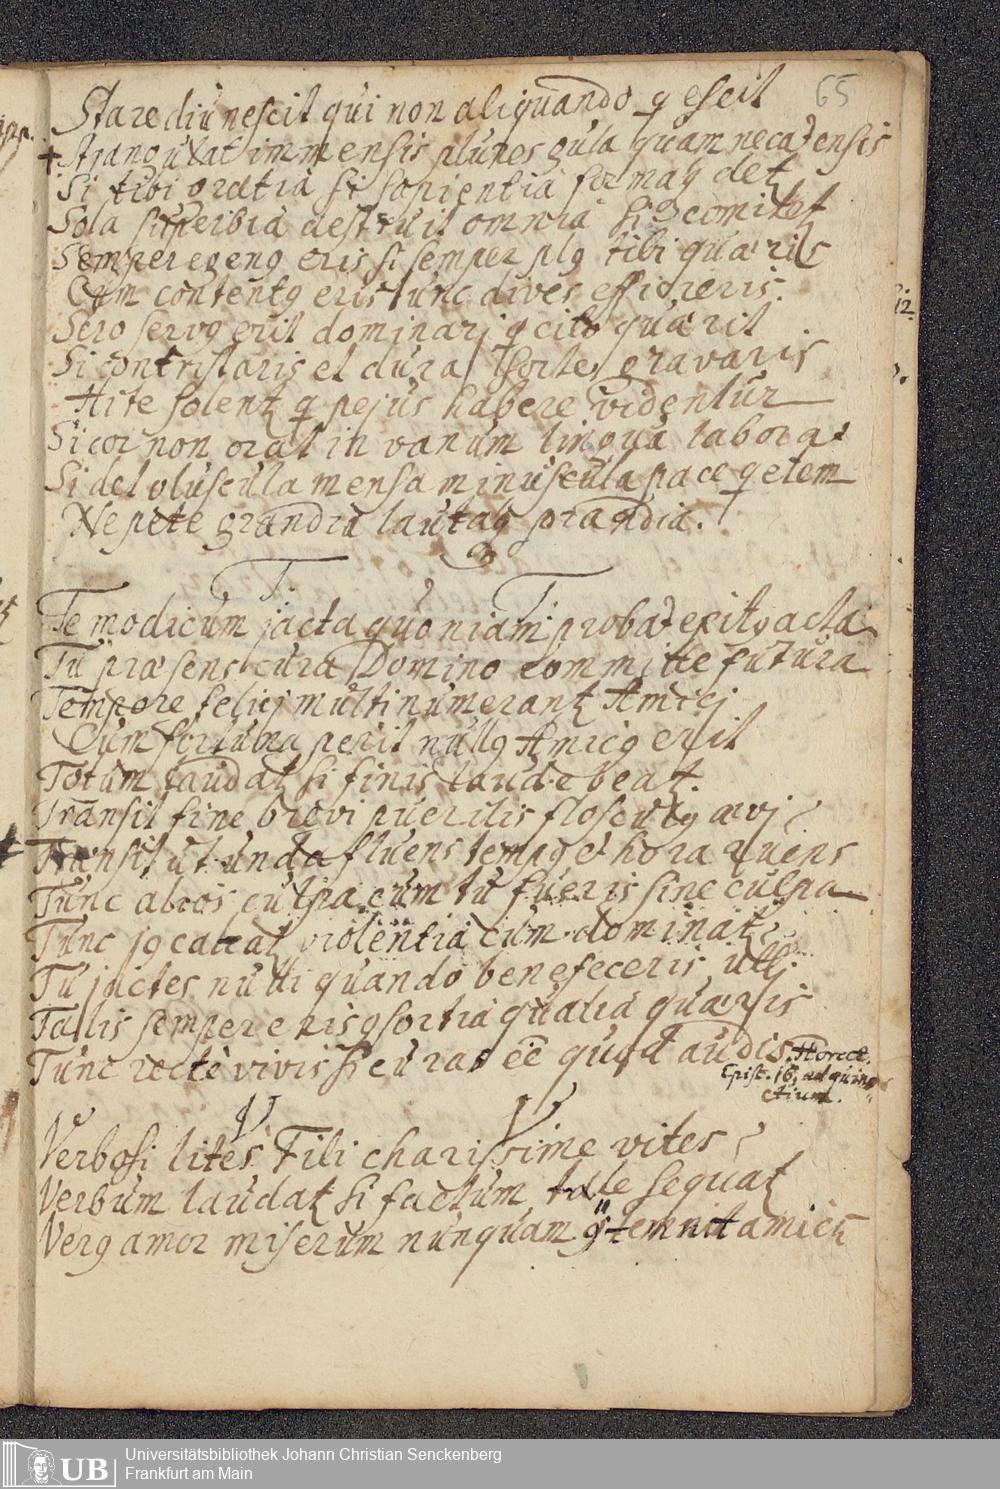 65
Stare diu nescit qui non aliquando qescit
+ Strangulat immensis plures gula quam necat ensis
Si tibi gratia si sapientia formaq det
Sola superbia destruit omnia si comitet
Semper egenq eris si semper plq tibi quæris
Cum contentq eris tunc dives efficieris.
Sero servq erit dominarj q cito quærit
Si contristaris et dura sorte gravaris
Hi te solent q pejus habere videntur
Si cor non orat in vanum lingua laborat
Si det oluscula mensa minuscula pace qetem
Ne pete grandia lautaq prandia.
T T
Te modicum jacta quoniam probat exitq acta
Tu præsens cura Domino committe futura
Tempore felicj multi numerant Amicj
Cum fortuna perit nullq Amicq erit
Totum laudat si finis laude beat.
Transit fine brevi puerilis flosculq ævj
Transit ut unda fluens tempq et hora ruens
Tunc alios culpa cum tu fueris sine culpa
Tunc jq calcat violentia cum dominat
Tu jactes nulli quando benefeceris ulli
Talis semper eris qsortia qualia quæris
Tunc recte vivis si curas ee quod audis. Horat.
Epist. 16. ad quin
ctium.
V V
Verbosi lites Fili charissime vites
Verbum laudat si factum tale sequat
Verq amor miserum nunquam qtemnit amicu
Universitätsbibliothek Johann Christian Senckenberg
Frankfurt am Main
UB